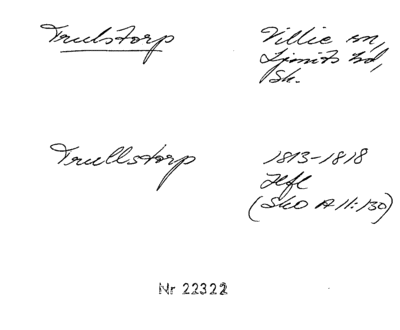 Trulstorp
Villie sn,
Ljunits hd,
Sk.
Trullstorp
1813-1818
Hfl
(SkO A II:130)
Nr 22322